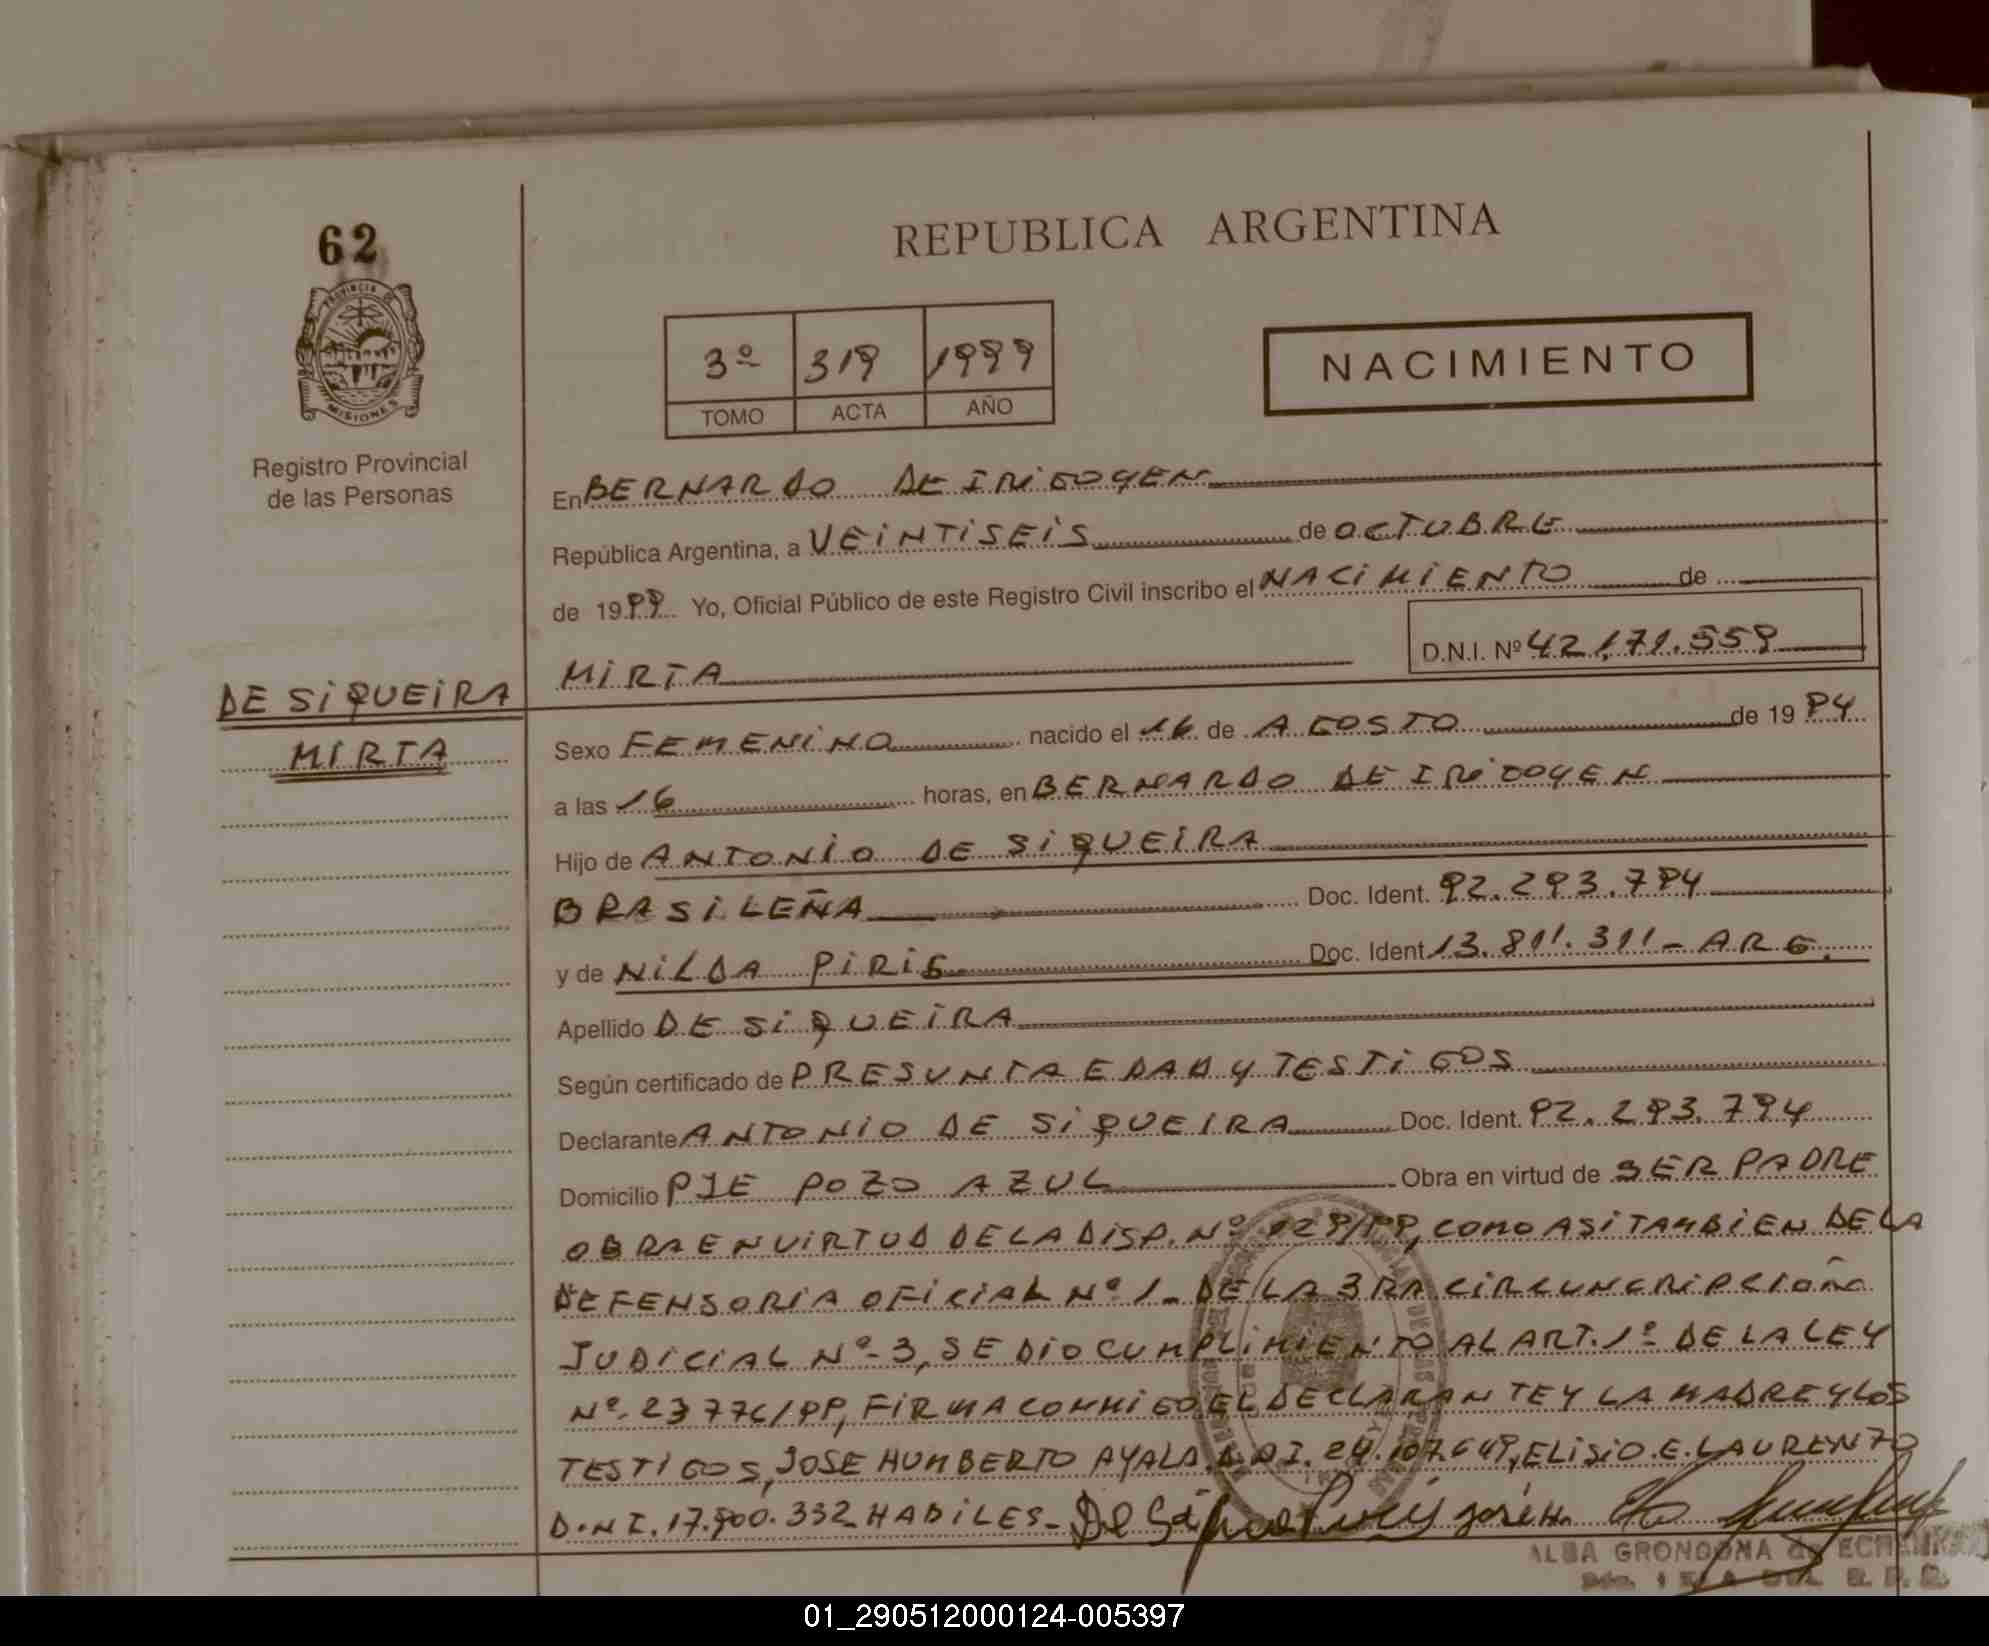 62
PROVINCIA DE
MISIONES
Registro Provincial
de las Personas
REPUBLICA ARGENTINA
3º 319 1999
TOMO ACTA AÑO
NACIMIENTO
En BERNARDO DE IRIGOYEN
República Argentina, a VEINTISEIS de OCTUBRE
de 1999 Yo, Oficial Público de este Registro Civil inscribo el NACIMIENTO de
MIRTA D.N.I. Nº 42.171.559
DE SIQUEIRA
MIRTA
Sexo FEMENINO nacido el 16 de AGOSTO de 1994
a las 16 horas, en BERNARDO DE IRIGOYEN
Hijo de ANTONIO DE SIQUEIRA
BRASILEÑA Doc. Ident. 92.293.794
y de NILDA PIRIS Doc. Ident 13.811.311- ARG.
Apellido DE SIQUEIRA
Según certificado de PRESUNTA EDAD Y TESTIGOS
Declarante ANTONIO DE SIQUEIRA Doc. Ident. 92.293.794
Domicilio PJE POZO AZUL Obra en virtud de SER PADRE
OBRA EN VIRTUD DE LA DISP. Nº COMO ASI TAMBIEN DE LA
DEFENSORIA OFICIAL Nº 1- DE LA 3RA CIRCUNCRIPCION
JUDICIAL Nº-3, SE DIO CUMPLIMIENTO AL ART. 1º DE LA LEY
Nº. 23776/99, FIRMA CONMIGO EL DECLARANTE Y LA MADRE Y LOS
TESTIGOS, JOSE HUMBERTO AYALA D.N.I. 24.107.649, ELISIO.E. LAURENZO
D.N.I. 17.900.332 HABILES- José H.
ALBA GRONDONA de
01_290512000124-005397